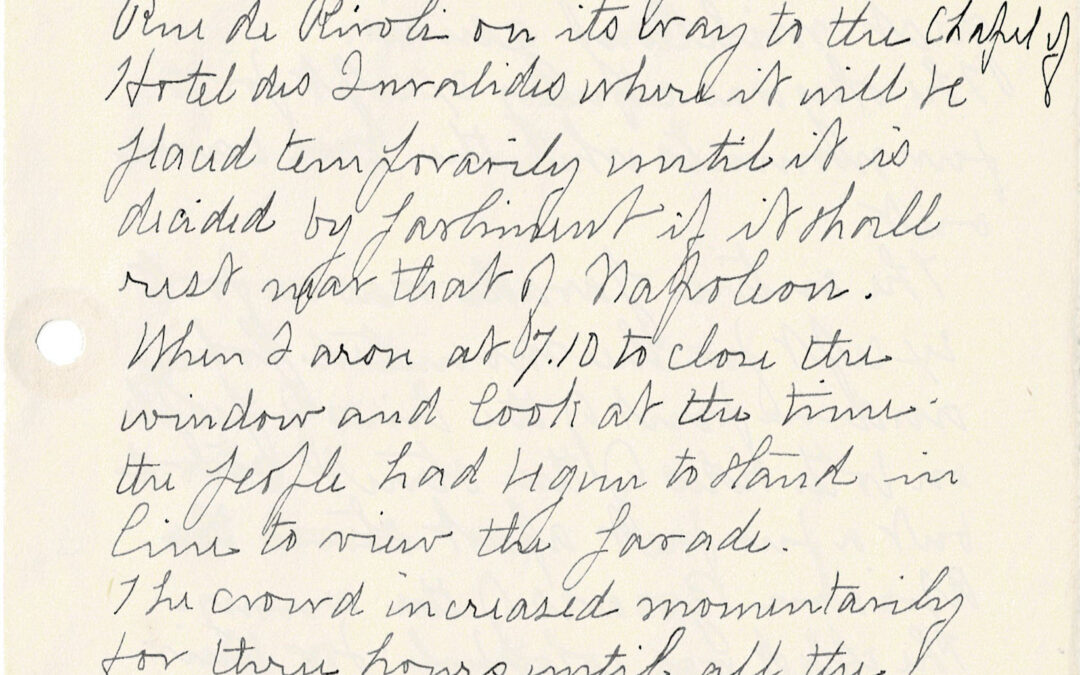 Rue de Rivoli on its way to the Chapel of
Hotel des Invalides where it will be
placed temporarily until it is
decided by parliment if it shall
rest near that of Napoleon.
When I arose at 7.10 to close the
window and look at the time.
the people had begun to stand in
line to view the parade.
The crowd increased momentarily
for three hours until all the